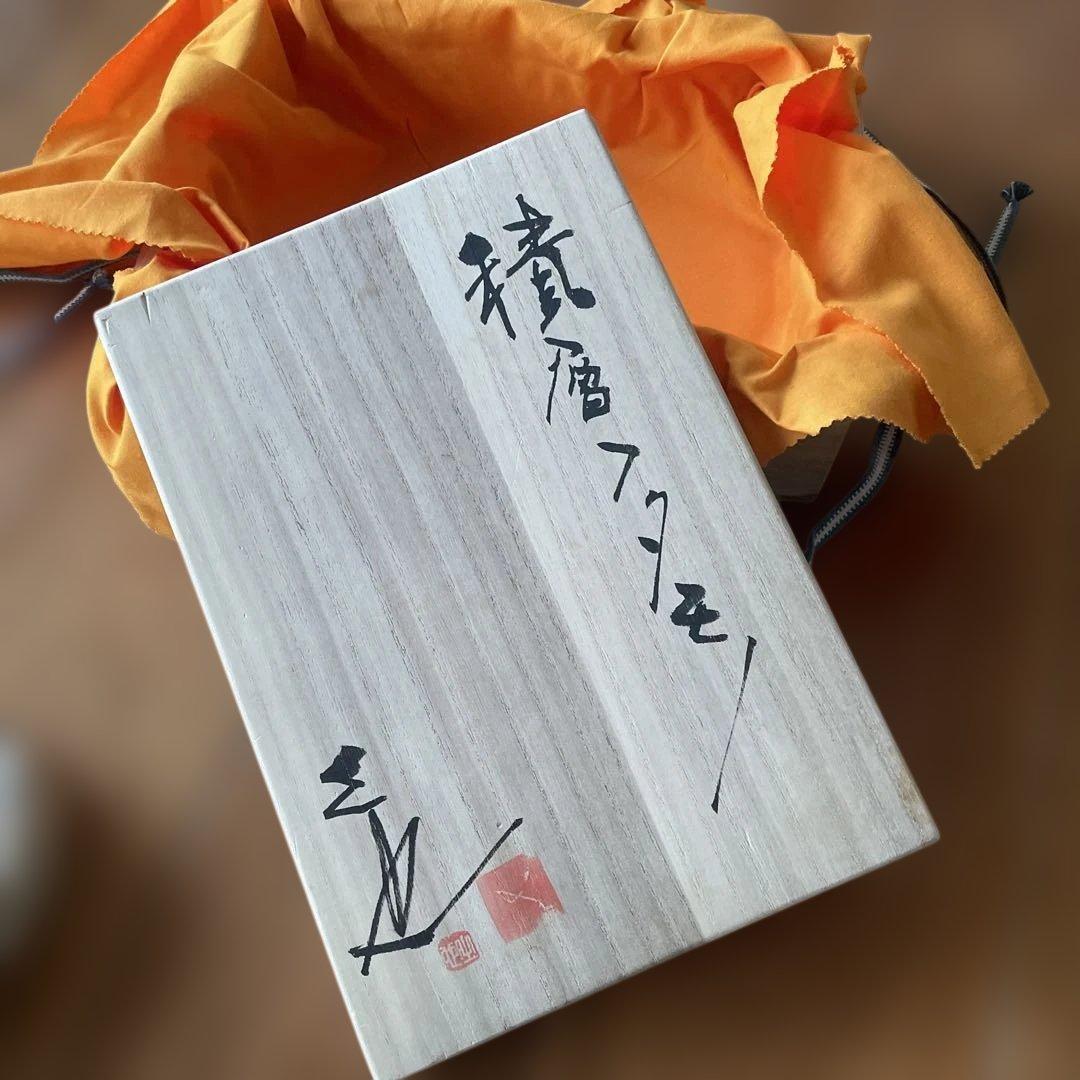 積層フタモノ